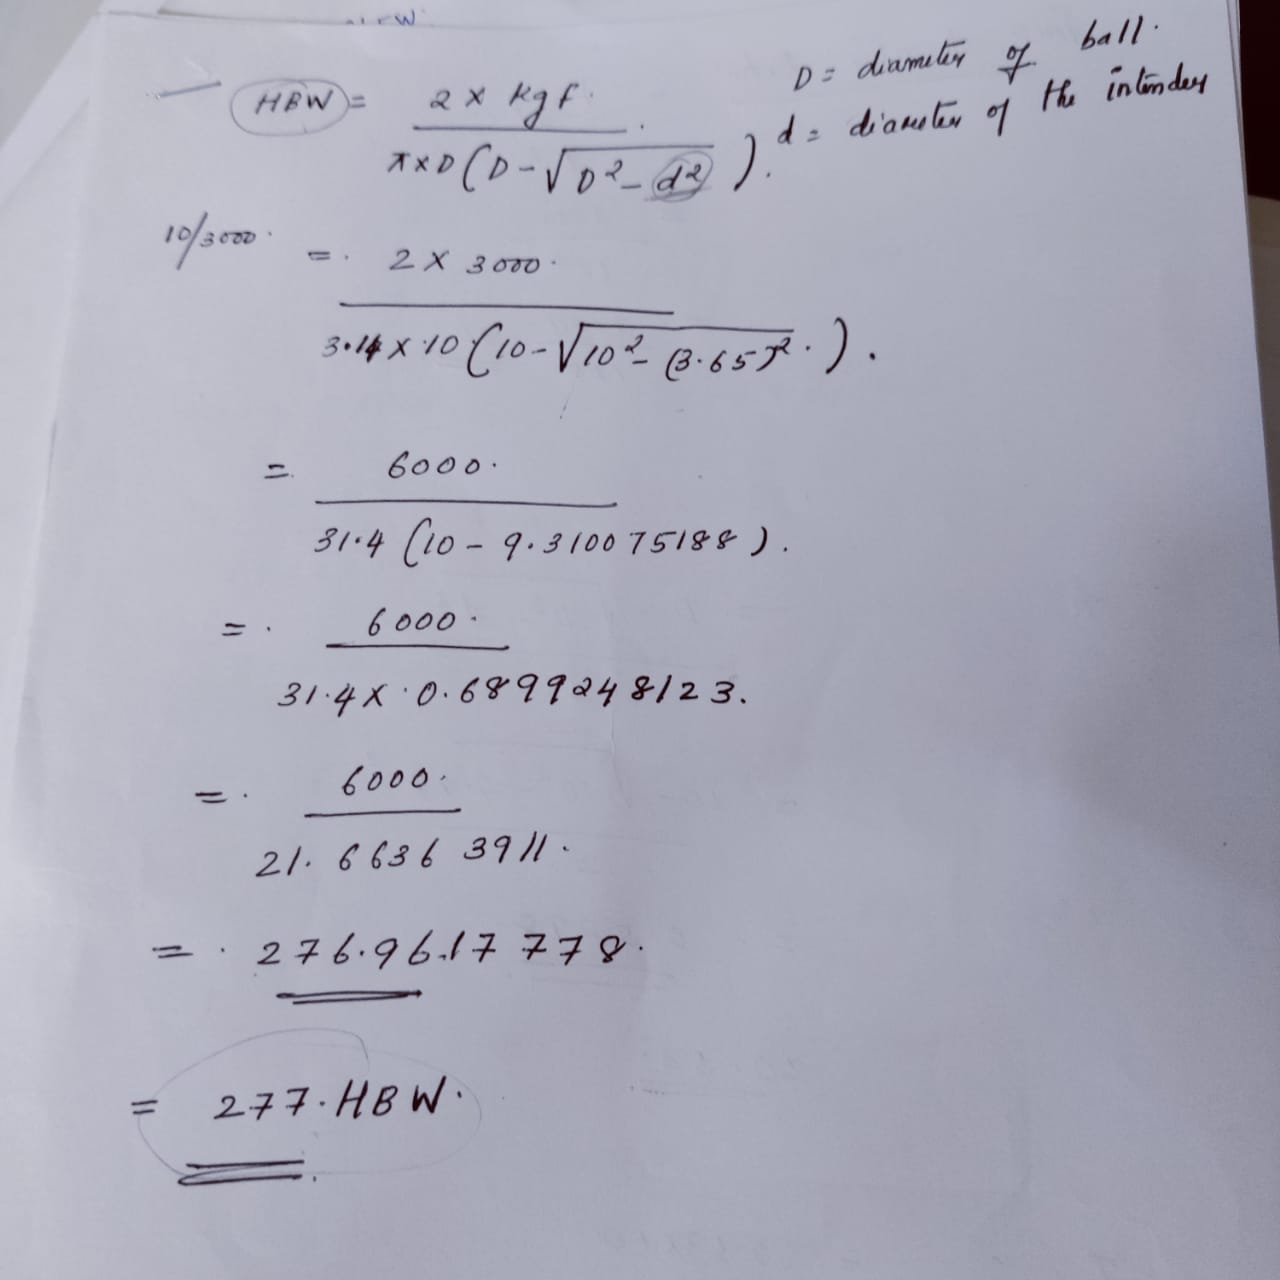 HBW = 2 x kgf.
π x D (D - √D² - d²).
D = diameter of ball.
d = diameter of the intender
10/3000.
= . 2 x 3000.
3.14 x 10 (10 - √10² - (3.65)².).
= 6000.
31.4 (10 - 9.310075188).
= . 6000.
31.4 x 0.6899248123.
= . 6000.
21.66363911.
= . 276.9617778.
= 277. HBW.